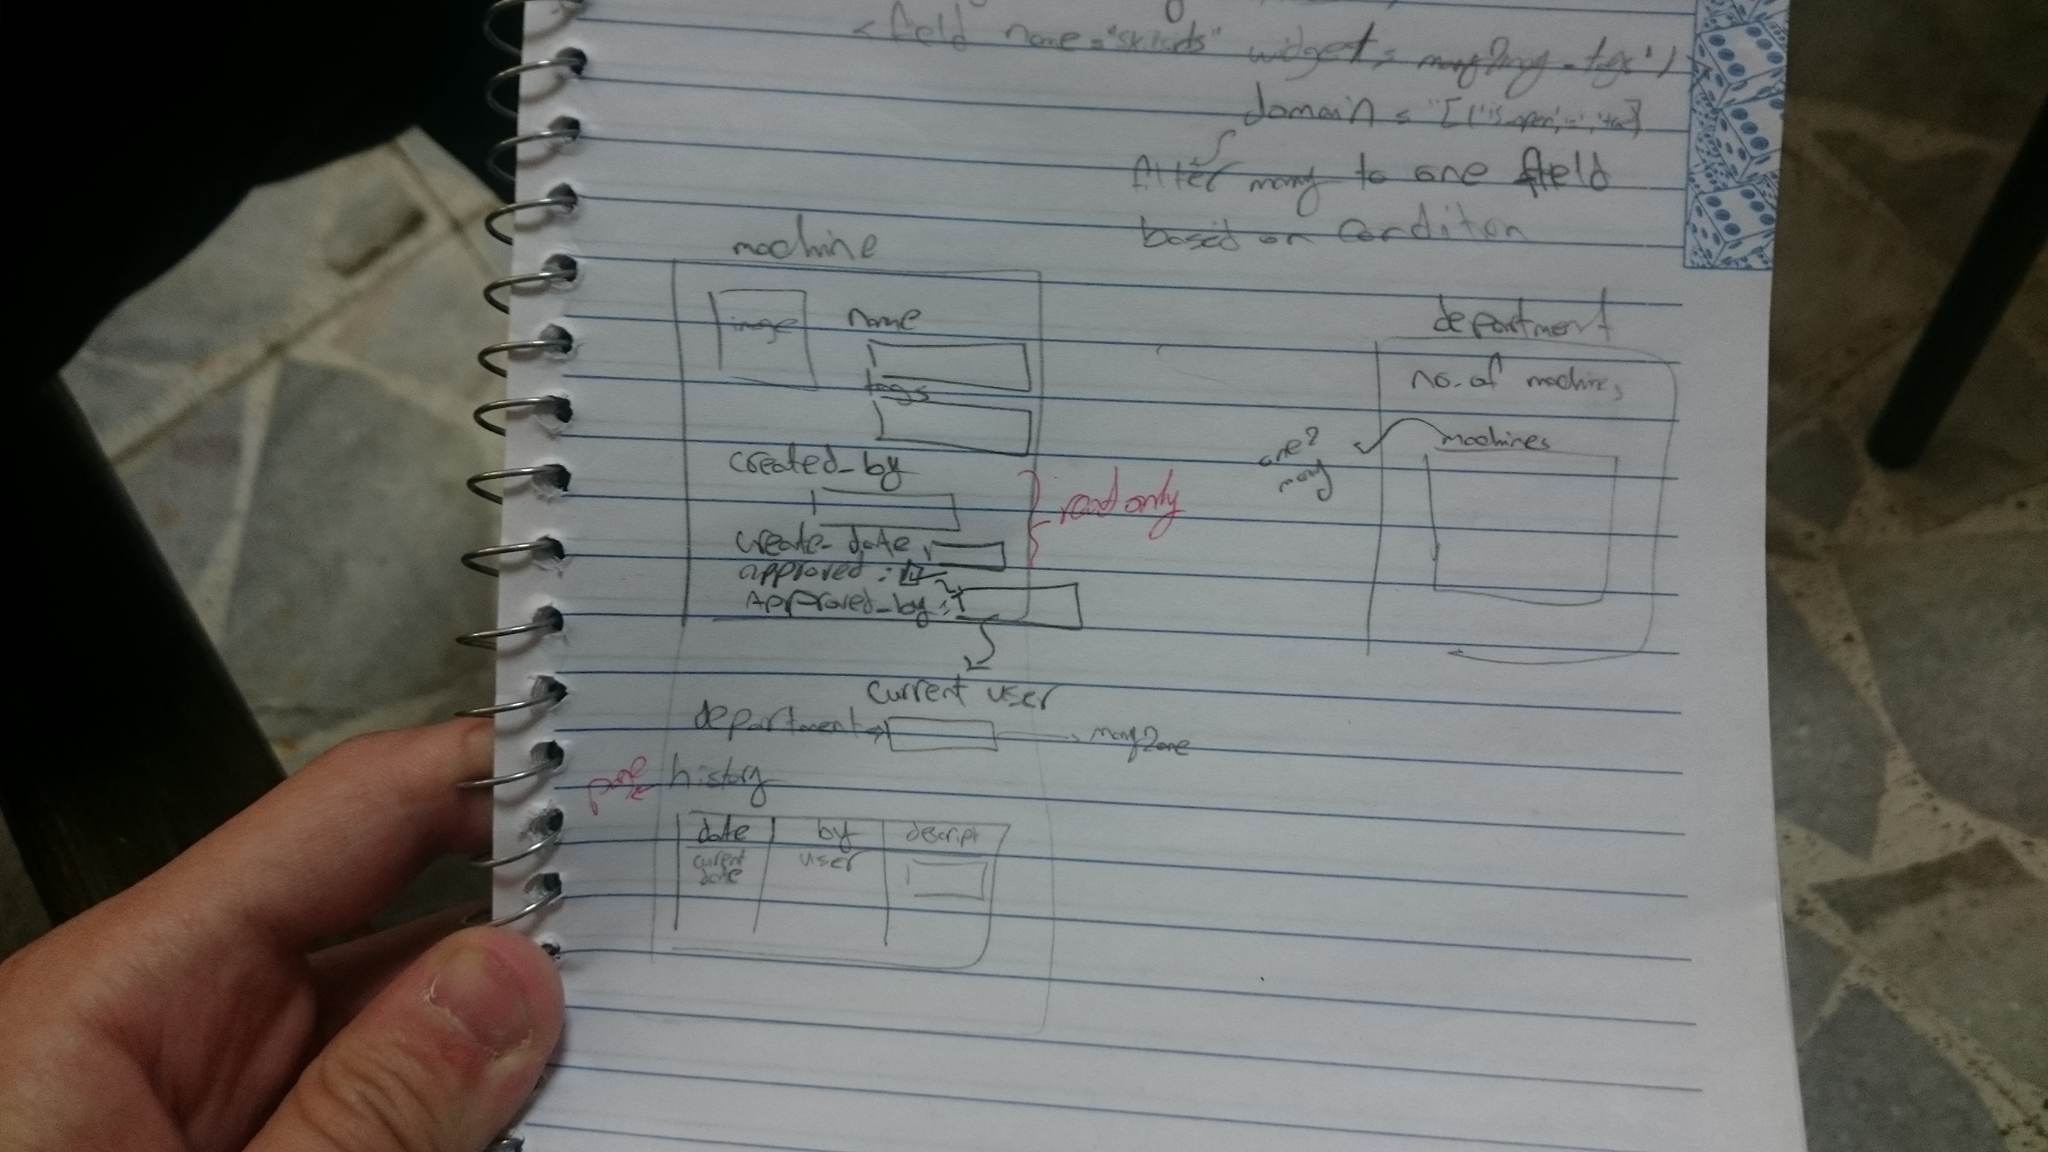 <field name="" widget= many2many-tags')
domain = "[('is_open','=','
filter many to one field
based on condition
machine
image
name
tags
created_by
read only
create_date
approved :
Approved_by :
current user
department
many2one
page
history
date
by
descript
current
date
user
department
no. of machines
machines
one2
many